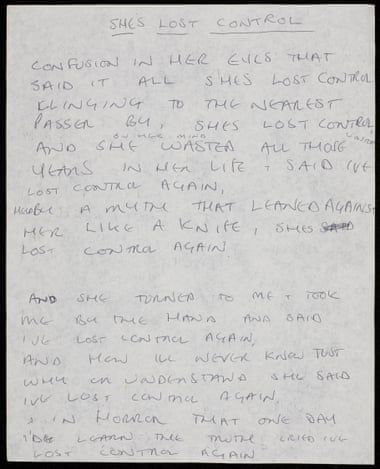 SHES LOST CONTROL
CONFUSION IN HER EYES THAT
SAID IT ALL SHES LOST CONTROL
KLINGING TO THE NEAREST
PASSER BY, SHES LOST CONTROL
ON HER MIND
AND SHE WASTED ALL THOSE
YEARS IN HER LIFE + SAID IVE
LOST CONTROL AGAIN,
A MYTH THAT LEANED AGAINST
HER LIKE A KNIFE, SHES SAID
LOST CONTROL AGAIN.
AND SHE TURNED TO ME + TOOK
ME BY THE HAND AND SAID
IVE LOST CONTROL AGAIN,
AND HOW ILL NEVER KNEW JUST
WHY OR UNDERSTAND SHE SAID
IVE LOST CONTROL AGAIN,
+ IN HORROR THAT ONE DAY
LEARN THE TRUTH CRIED IVE
LOST CONTROL AGAIN